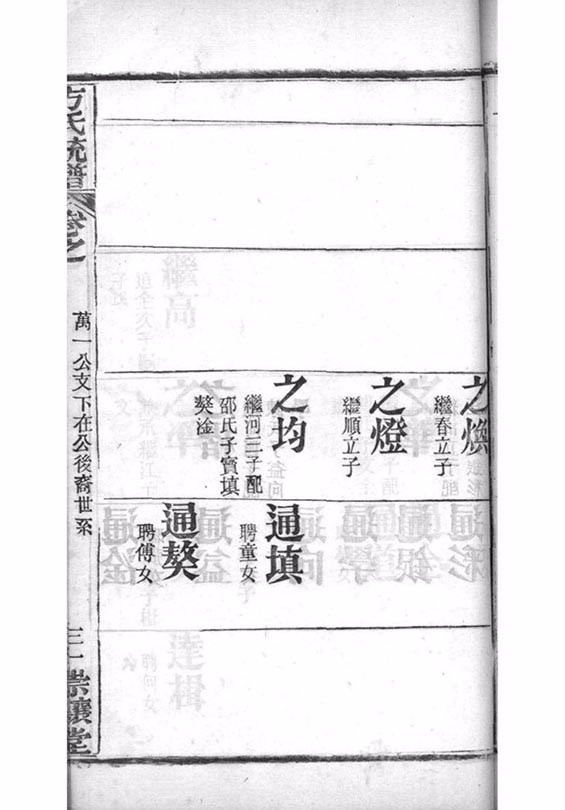 之煥
繼春立子
之燈
繼順立子
之均
繼河三子配
邵氏子寳填
獒淦
通填
聘童女
通獒
聘傅女
方氏統譜
卷之
萬一公支下在公後裔世系
三一
崇讓堂